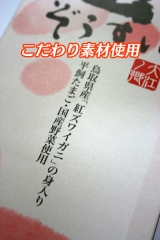 ぞうすい
こだわり素材使用
鳥取県産「紅ズワイガニ」の身入り
平飼たまご・国産野菜使用
大江ノ郷